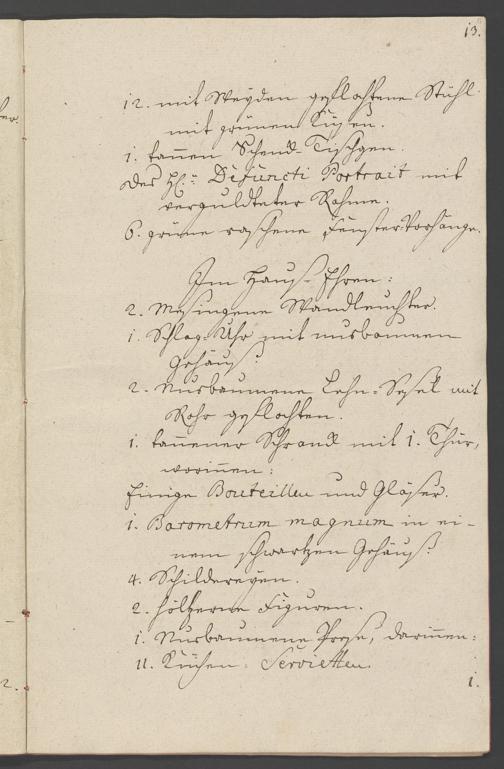 13.
12. mit Weyden geflochtene Stühl
mit grünen Küßen.
1. tannen Schenck-Tischgen.
Des H: Defuncti Portrait mit
verguldteter Rahme.
6. grüne raschene Fenster-Vorhänge.
Im Hauß-Ehren:
2. Mesingene Wandleuchter.
1. Schlag-Uhr mit nusbaumen
Gehäuß.
2. Nusbaumene Lehn-Sesel mit
Rohr geflochten.
1. tannener Schranck mit 1. Thür,
worinnen:
Einige Bouteillen und Gläser.
1. Barometrum magnum in ei-
nem schwartzen Gehäuß.
4. Schildereyen.
2. höltzerne Figuren.
1. Nusbaumene Prese, darinnen:
11. Küchen-Servietten.
1.
2.